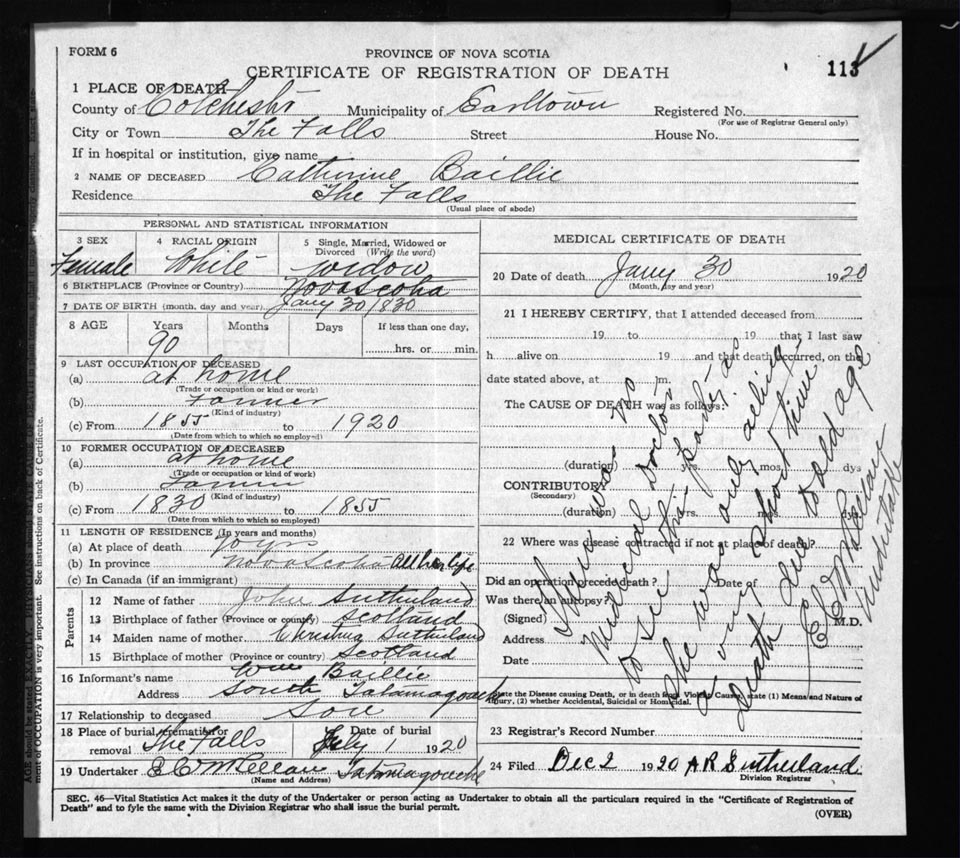 FORM 6
PROVINCE OF NOVA SCOTIA
CERTIFICATE OF REGISTRATION OF DEATH
113
1 PLACE OF DEATH—
County of Colchester Municipality of Earltown Registered No.
(For use of Registrar General only)
City or Town The Falls Street House No.
If in hospital or institution, give name
2 NAME OF DECEASED Catherine Baillie
Residence The Falls
(Usual place of abode)
PERSONAL AND STATISTICAL INFORMATION
3 SEX 4 RACIAL ORIGIN 5 Single, Married, Widowed or Divorced (Write the word)
Female White widow
6 BIRTHPLACE (Province or Country) Nova Scotia
7 DATE OF BIRTH (month, day and year) Jany 30 1830
8 AGE Years Months Days If less than one day,
90 hrs. or min.
9 LAST OCCUPATION OF DECEASED
(a) at home
(Trade or occupation or kind or work)
(b) Farmer
(Kind of industry)
(c) From 1855 to 1920
(Date from which to which so employed)
10 FORMER OCCUPATION OF DECEASED
(a) at home
(Trade or occupation or kind of work)
(b)
(Kind of industry)
(c) From 1830 to 1855
(Date from which to which so employed)
11 LENGTH OF RESIDENCE (In years and months)
(a) At place of death yrs
(b) In province Nova Scotia All her life
(c) In Canada (if an immigrant)
Parents
12 Name of father John Sutherland
13 Birthplace of father (Province or country) Scotland
14 Maiden name of mother Christina Sutherland
15 Birthplace of mother (Province or country) Scotland
16 Informant's name Wm Baillie
Address South Tatamagouche
17 Relationship to deceased Son
18 Place of burial, cremation or removal The Falls Date of burial July 1 1920
19 Undertaker E C McLellan Tatamagouche
(Name and Address)
MEDICAL CERTIFICATE OF DEATH
20 Date of death Jany 30 1920
(Month, day and year)
21 I HEREBY CERTIFY, that I attended deceased from
19 to 19 that I last saw
h alive on 19 and that death occurred, on the
date stated above, at m.
The CAUSE OF DEATH was as follows:
(duration) yrs. mos. days
CONTRIBUTORY
(Secondary)
(duration) yrs. mos. days
22 Where was disease contracted if not at place of death?
Did an operation precede death? Date of
Was there an autopsy?
(Signed) M.D.
Address
Date
State the Disease causing Death, or in death from Violent Causes, state (1) Means and Nature of
Injury, (2) whether Accidental, Suicidal or Homicidal.
There was no
Medical Doctor
to see this party as
She was only ailing
a very short time
Death due to old age
E C McLellan
Undertaker
23 Registrar's Record Number
24 Filed Dec 2 1920 A R Sutherland
Division Registrar
SEC. 46—Vital Statistics Act makes it the duty of the Undertaker or person acting as Undertaker to obtain all the particulars required in the "Certificate of Registration of
Death" and to fyle the same with the Division Registrar who shall issue the burial permit.
(OVER)